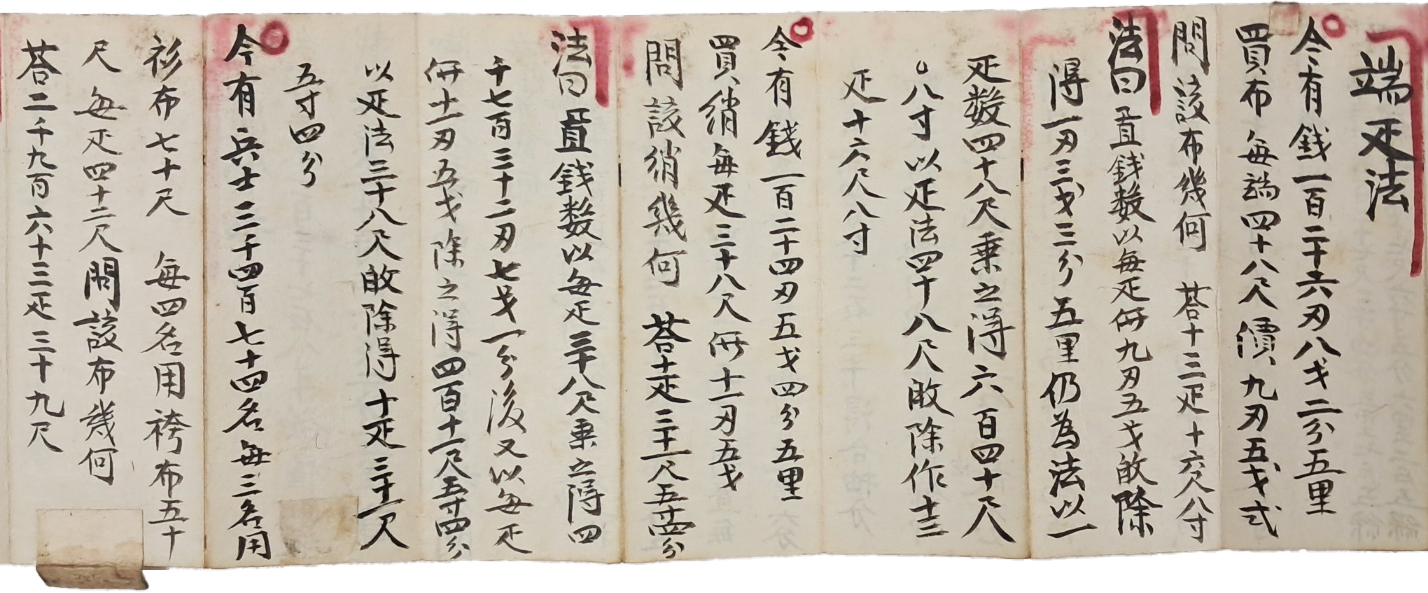 端疋法
今有錢一百二十六刃八戈二分五里
買布每端四十八尺價九刃五戈弍
問該布幾何 荅十三疋十六尺八寸
法曰置錢数以每疋価九刃五戈故除
得一刃三戈三分五里仍為法以一
疋数四十八尺乗之得六百四十尺
〇八寸以疋法四十八尺故除作十三
疋十六尺八寸
今有錢一百二十四刃五戈四分五里
買綃每疋三十八尺価十一刃五戈
問該綃幾何 荅十疋三十一尺五寸四分
法曰置錢数以每疋三十八尺乗之得四
千七百三十二刃七戈一分後又以每疋
価十一刃五戈除之得四百十一尺五寸四分
以疋法三十八尺故除得十疋三十一尺
五寸四分
今有兵士三千四百七十四名每三名用
衫布七十尺 每四名用袴布五十
尺每疋四十二尺問該布幾何
荅二千九百六十三疋三十九尺